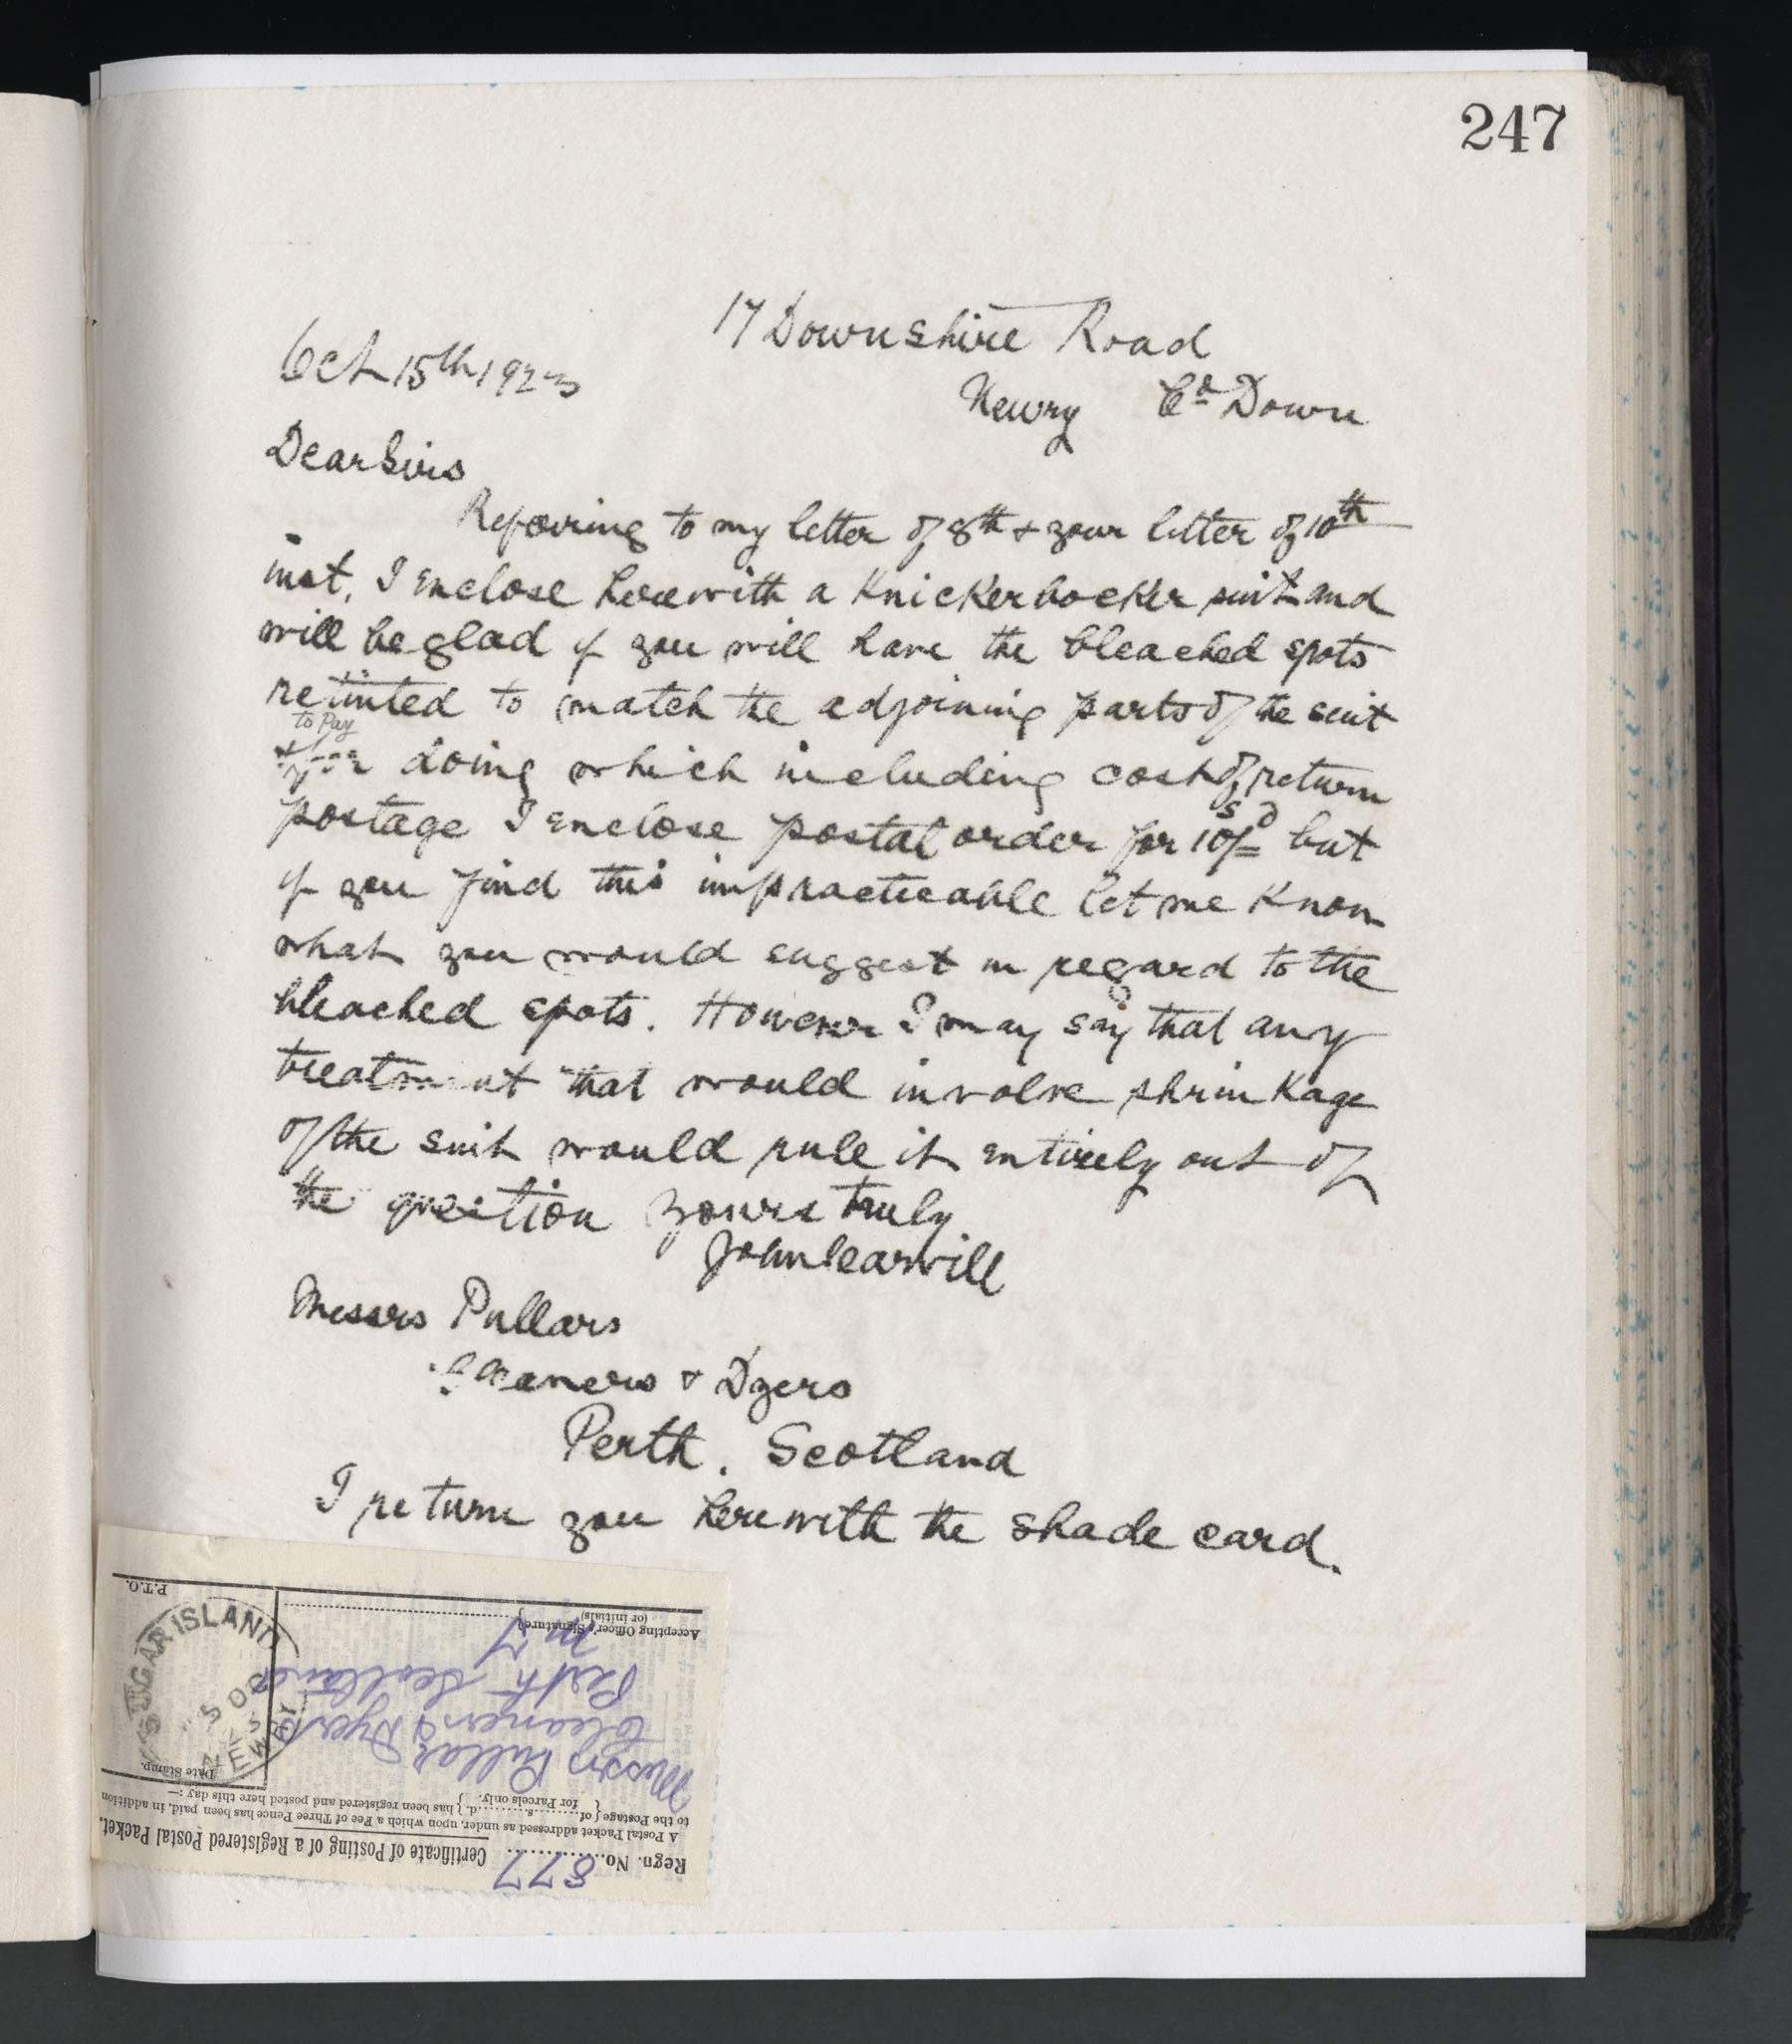 247
17 Downshire Road
Oct 15th 1923
Newry Co Down
Dear Sirs
Referring to my letter of 8th & your letter of 10th
inst, I enclose herewith a Knickerbocker suit and
will be glad if you will have the bleached spots
retinted to match the adjoining parts of the suit
to Pay
for doing which including cost of return
postage I enclose postal order for 10s/=d but
if you find this impracticable let me know
what you would suggest in regard to the
bleached spots. However I may say that any
treatment that would involve shrinkage
of the suit would rule it entirely out of
the question yours truly
John Searvill
Messrs Pullars
Cleaners & Dyers
Perth. Scotland
I return you herewith the shade card.
Regn. No. 877 Certificate of Posting of a Registered Postal Packet.
A Postal Packet addressed as under, upon which a Fee of Three Pence has been paid, in addition
to the Postage { of ..........s..........d. } has been registered and posted here this day :—
{ for Parcels only. }
Date Stamp.
Messrs Pullar
Cleaners & Dyers
Perth Scotland
Accepting Officer's Signature }
(or initials)
P.T.O.
SUGAR ISLAND
NEWRY